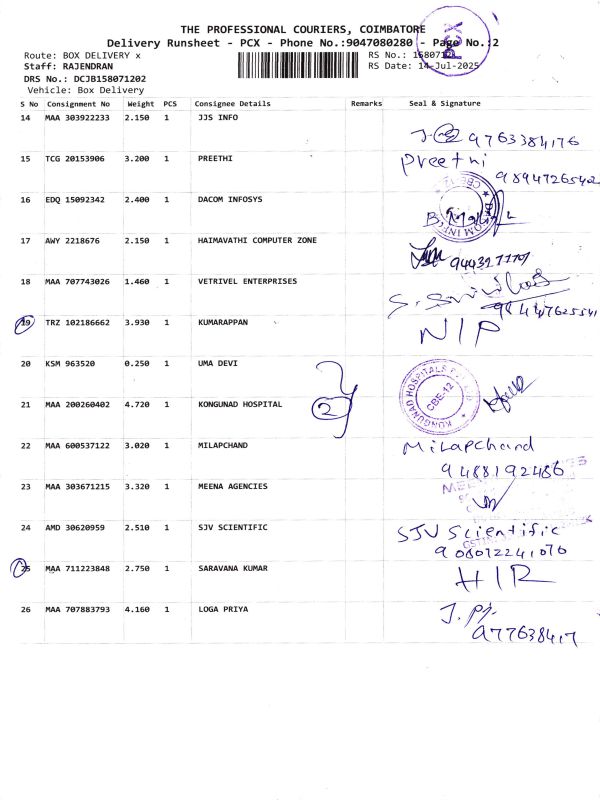 THE PROFESSIONAL COURIERS, COIMBATORE
Delivery Runsheet - PCX - Phone No.:9047080280 - Page No.:2
Route: BOX DELIVERY x RS No.:
Staff: RAJENDRAN RS Date: 14-Jul-2025
DRS No.: DCJB158071202
Vehicle: Box Delivery
S No Consignment No Weight PCS Consignee Details Remarks Seal & Signature
14 MAA 303922233 2.150 1 JJS INFO
9763384176
15 TCG 20153906 3.200 1 PREETHI Preethi
9894726542
16 EDQ 15092342 2.400 1 DACOM INFOSYS
17 AWY 2218676 2.150 1 HAIMAVATHI COMPUTER ZONE
18 MAA 707743026 1.460 1 VETRIVEL ENTERPRISES
19 TRZ 102186662 3.930 1 KUMARAPPAN N/P
20 KSM 963520 0.250 1 UMA DEVI
KONGUNAD HOSPITALS CBE-12
21 MAA 200260402 4.720 1 KONGUNAD HOSPITAL 2
22 MAA 600537122 3.020 1 MILAPCHAND Milapchand
9488192486
23 MAA 303671215 3.320 1 MEENA AGENCIES
24 AMD 30620959 2.510 1 SJV SCIENTIFIC SJV Scientific
25 MAA 711223848 2.750 1 SARAVANA KUMAR H/R
26 MAA 707883793 4.160 1 LOGA PRIYA
977638417